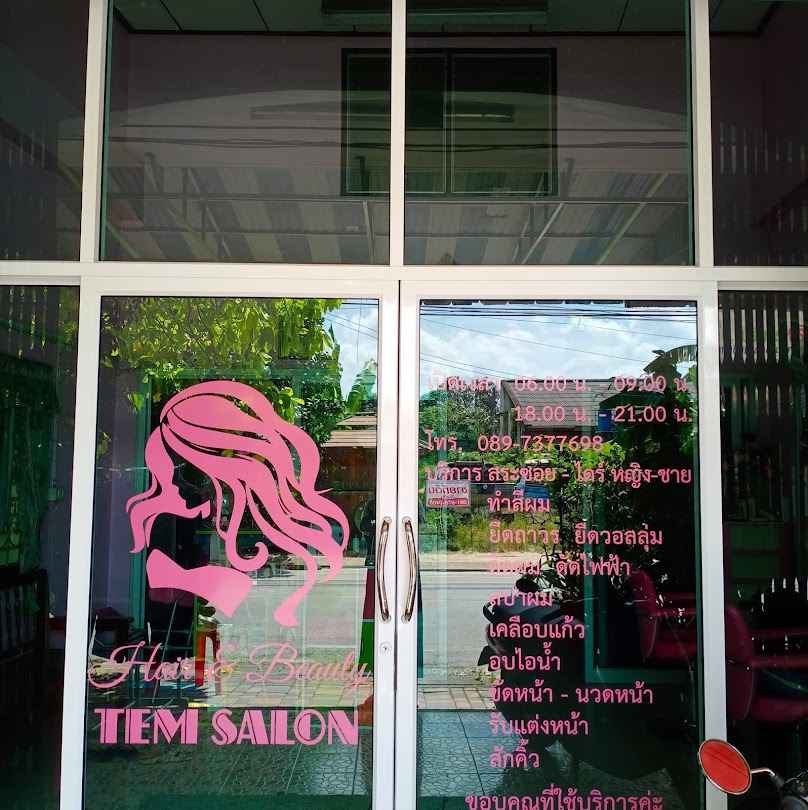 Hair & Beauty
TEM SALON
เปิดเวลา 06.00 น. - 09.00 น.
18.00 น. - 21.00 น.
โทร. 089-7377698
บริการ สระซอย - ไดร์ หญิง-ชาย
ทำสีผม
ยืดถาวร ยืดวอลลุ่ม
ดัดไฟฟ้า
สปาผม
เคลือบแก้ว
อบไอน้ำ
ขัดหน้า - นวดหน้า
รับแต่งหน้า
สักคิ้ว
ขอบคุณที่ใช้บริการค่ะ